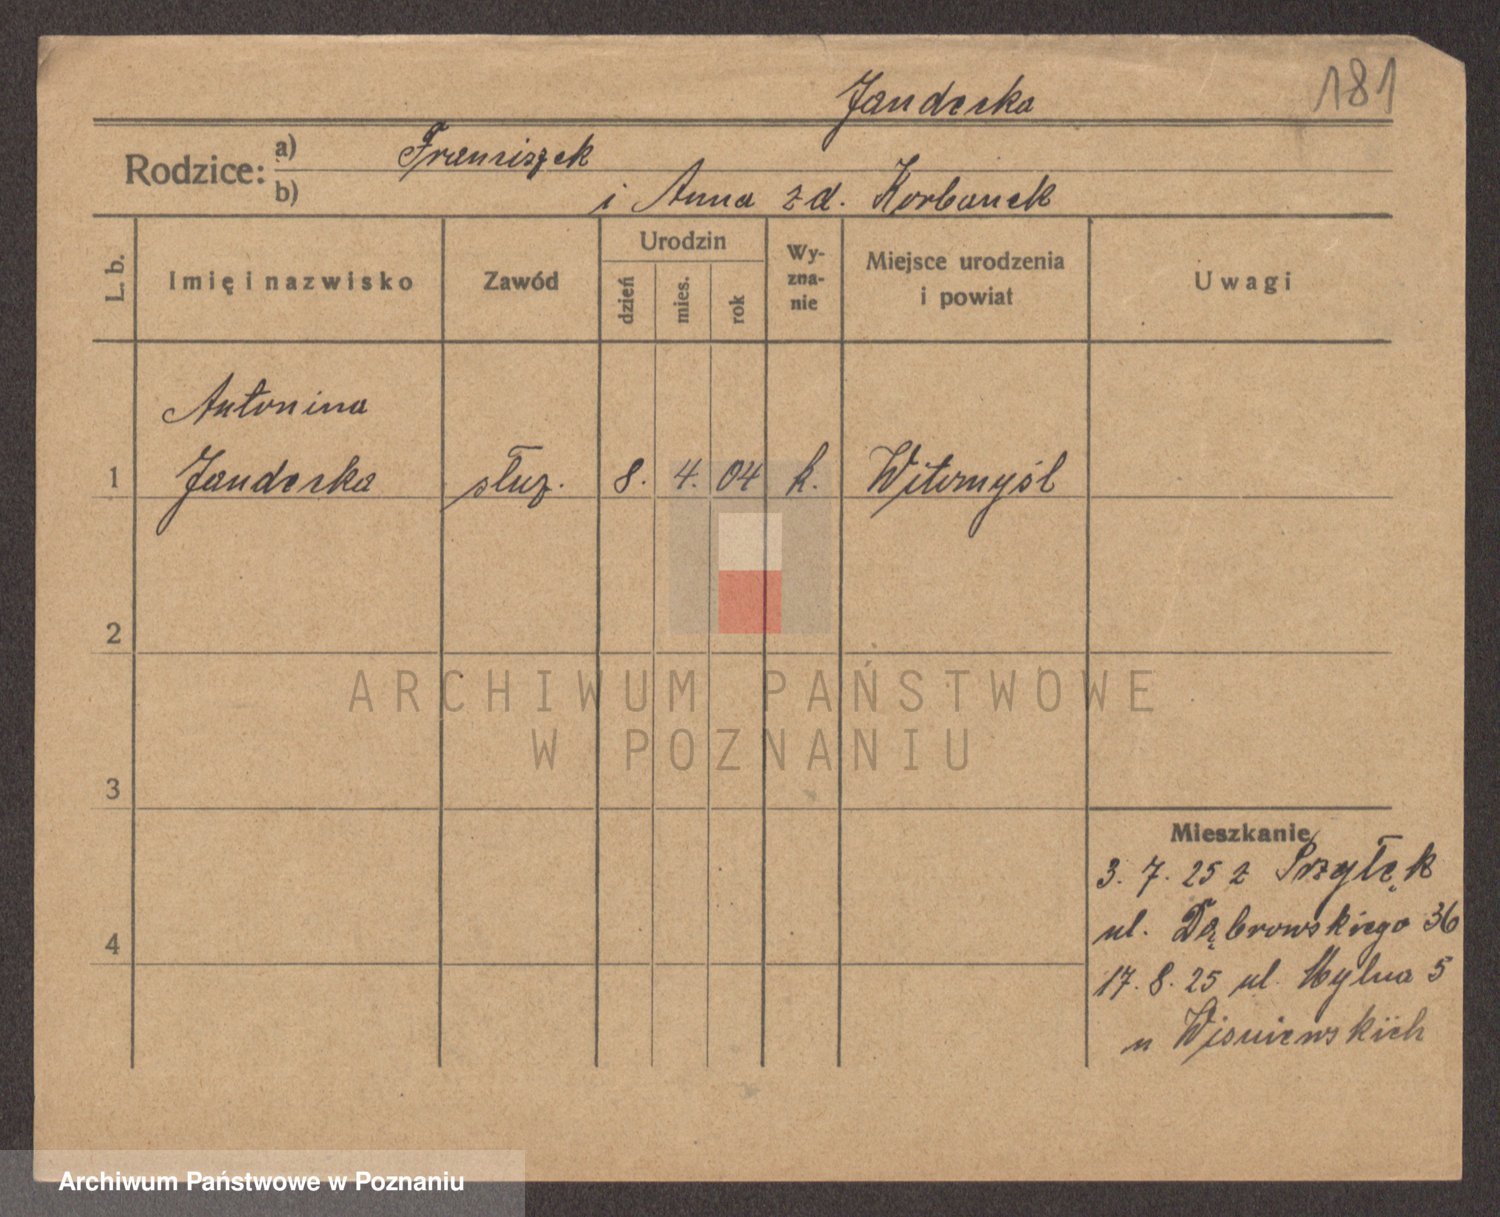 181
Jandecka
Rodzice: a) Franciszek
b) i Anna zd. Korbanek
L. b.
Imię i nazwisko
Zawód
Urodzin
dzień
mies.
rok
Wy-
zna-
nie
Miejsce urodzenia
i powiat
Uwagi
Antonina
1 Jandecka służ. 8. 4. 04 k. Witomyśl
2
ARCHIWUM PAŃSTWOWE
W POZNANIU
3
4
Mieszkanie
3. 7. 25 z Przyłęk
ul. Dąbrowskiego 36
17. 8. 25 ul. Mylna 5
u Wisniewskich
Archiwum Państwowe w Poznaniu